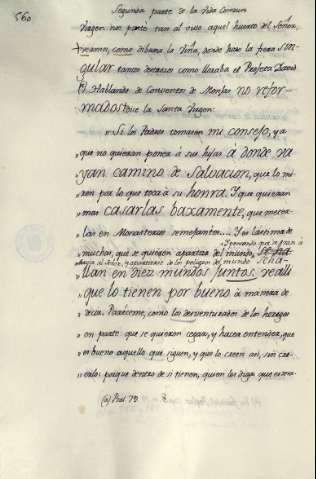 560
Segunda parte de la Vida Comun
Virgen no parto tan al vivo aquel huerto del Señor,
como dibuma la Viña, donde hizo la fiera sin-
gular tantos destrozos como lloraba el Profeta David
(a). Hablando de Conventos de Monjas no refor-
mados dice la Santa Virgen:
"Si los Padres tomasen mi consejo, ya
"que no quieran poner á sus hijas á donde va
yan camino de salvacion, que lo mi-
ren por lo que toca á su honra. Y que quieran
"mas casarlas baxamente, que meter-
"las en Monasterios semejantes.... Y es lastima de
"muchas, que se quieren apartar del mundo,
y pensando que se van á
servir al Señor, y apartarse de los peligros del mundo se ha-
llan en diez mundos juntos
que lo tienen por bueno á manera de
"decir. Pareceme, como los desventurados de los hereges
"en parte que se quieren cegar, y hacer entender, que
"es bueno aquello que siguen, y que lo creen asi, sin cre-
"erlo: porque dentro de si tienen, quien les diga que es
(a) 79